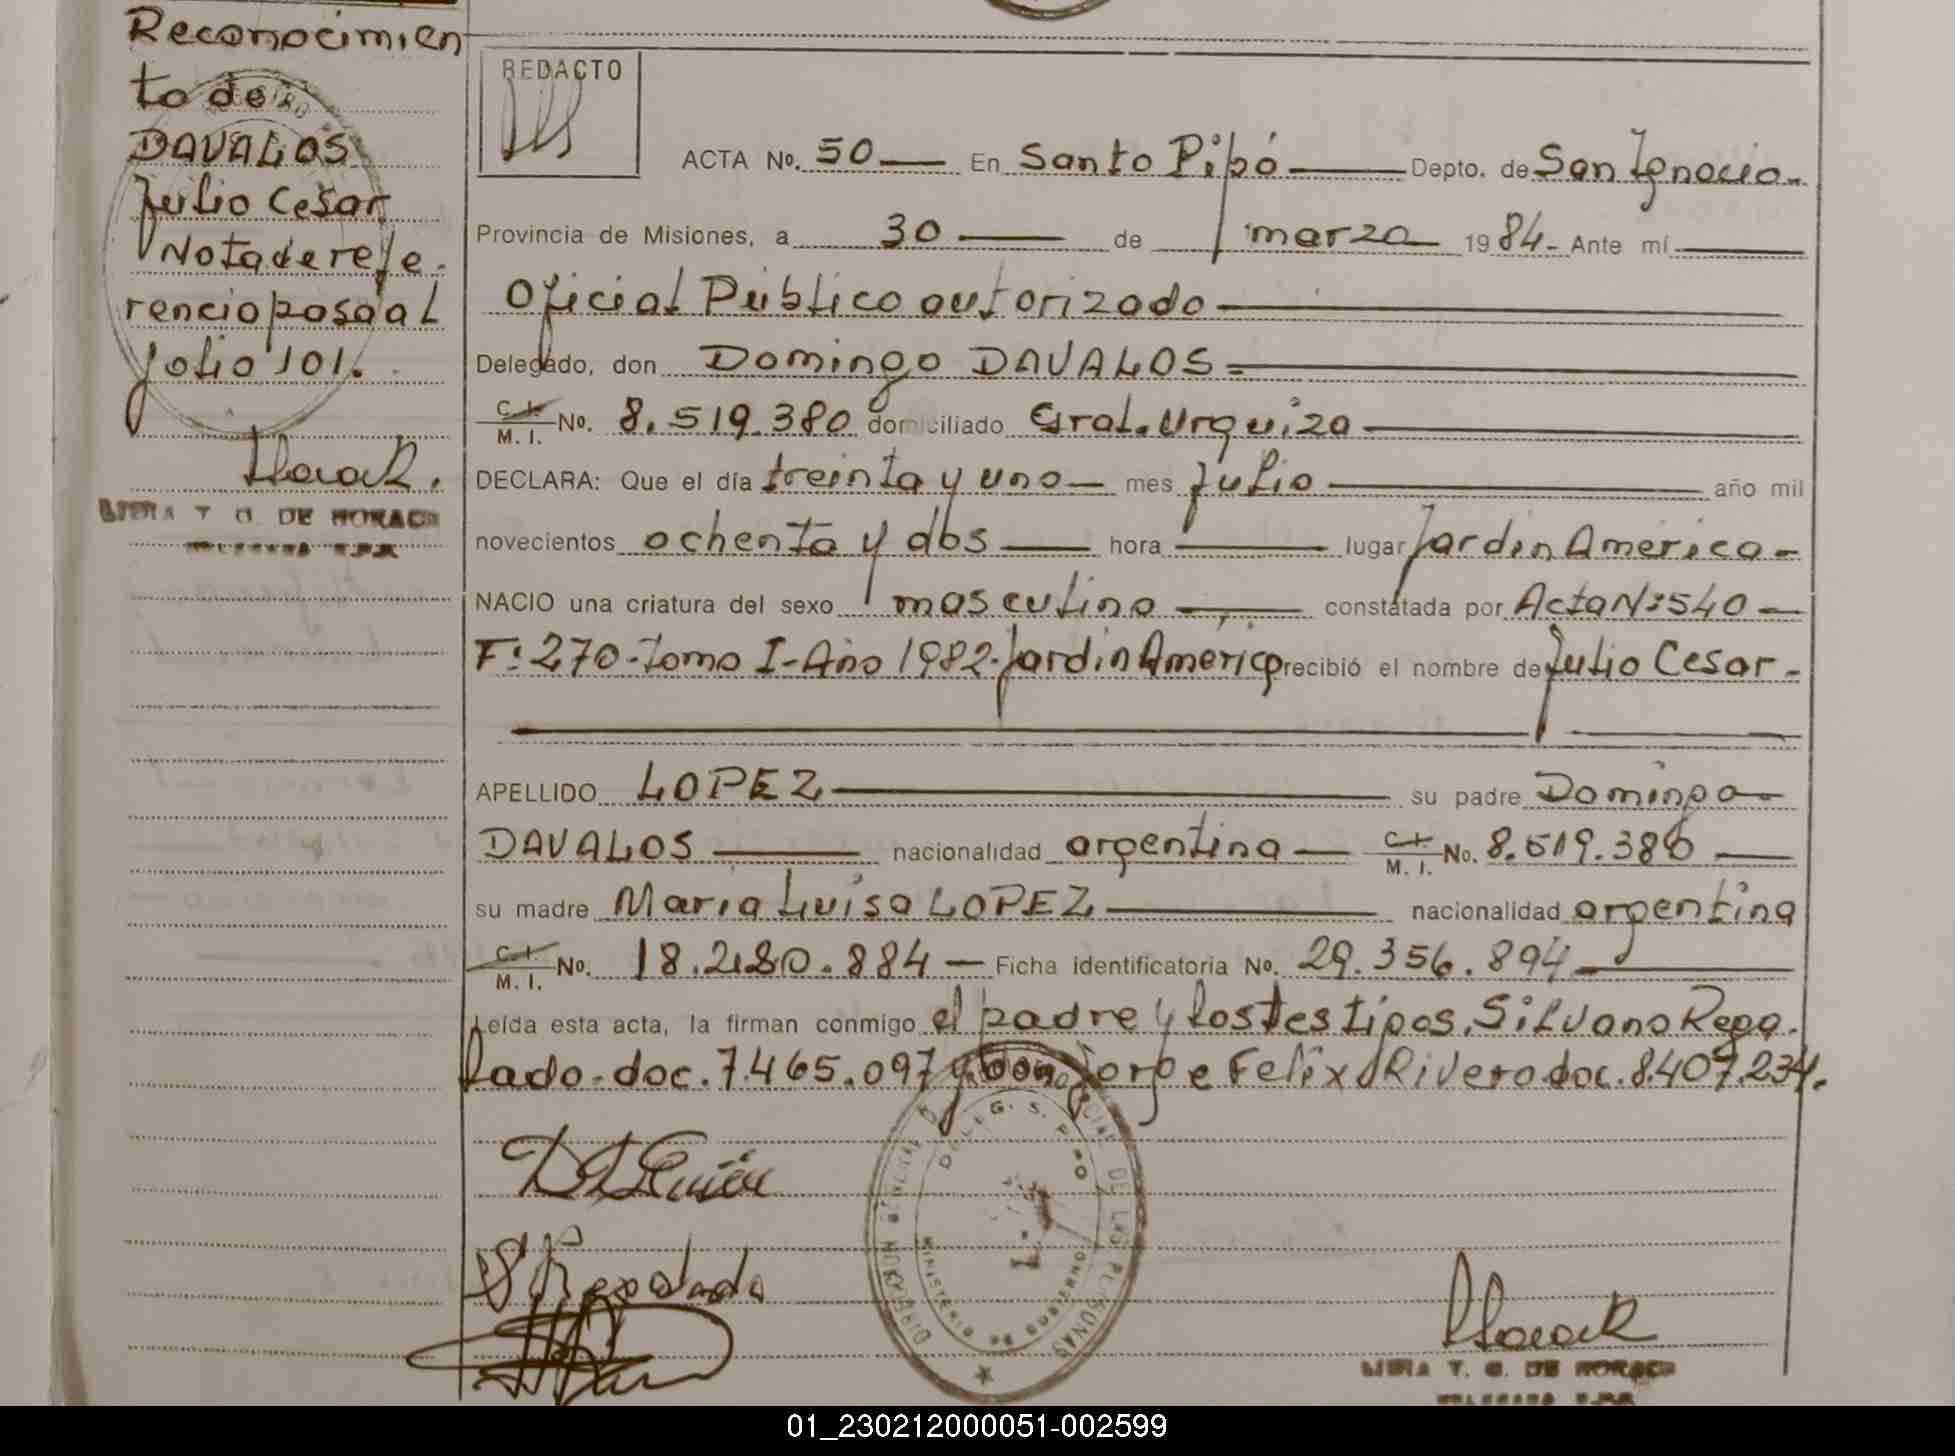 Reconocimien
to de
DAVALOS
Julio Cesar
Nota de refe.
rencia pasa al
folio 101.
Horack.
LIDIA T. G. DE HORACK
REDACTO
ACTA No. 50 — En Santo Pipó — Depto. de San Ignacio.
Provincia de Misiones, a 30 — de marzo 1984. Ante mí
Oficial Público autorizado
Delegado, don Domingo DAVALOS
C. I. / M. I. No. 8.519.380 domiciliado Gral. Urquiza
DECLARA: Que el día treinta y uno — mes Julio — año mil
novecientos ochenta y dos — hora — lugar Jardin America -
NACIO una criatura del sexo masculino — constatada por Acta Nº 540 —
Fº 270 - Tomo I - Año 1982. Jardin America recibió el nombre de Julio Cesar -
APELLIDO LOPEZ — su padre Domingo
DAVALOS — nacionalidad argentina — C. I. / M. I. No. 8.519.380 —
su madre Maria Luisa LOPEZ — nacionalidad argentina
C. I. / M. I. No. 18.280.884 — Ficha identificatoria No. 29.356.894
Leída esta acta, la firman conmigo el padre y los testigos, Silvano Rega.
lado. doc. 7.465.097 y don Jorge Felix Rivero doc. 8.407.234.
DELEG. S. PIPO
MINISTERIO DE GOBIERNO
S Regalado
Horack
LIDIA T. G. DE HORACK
01_230212000051-002599